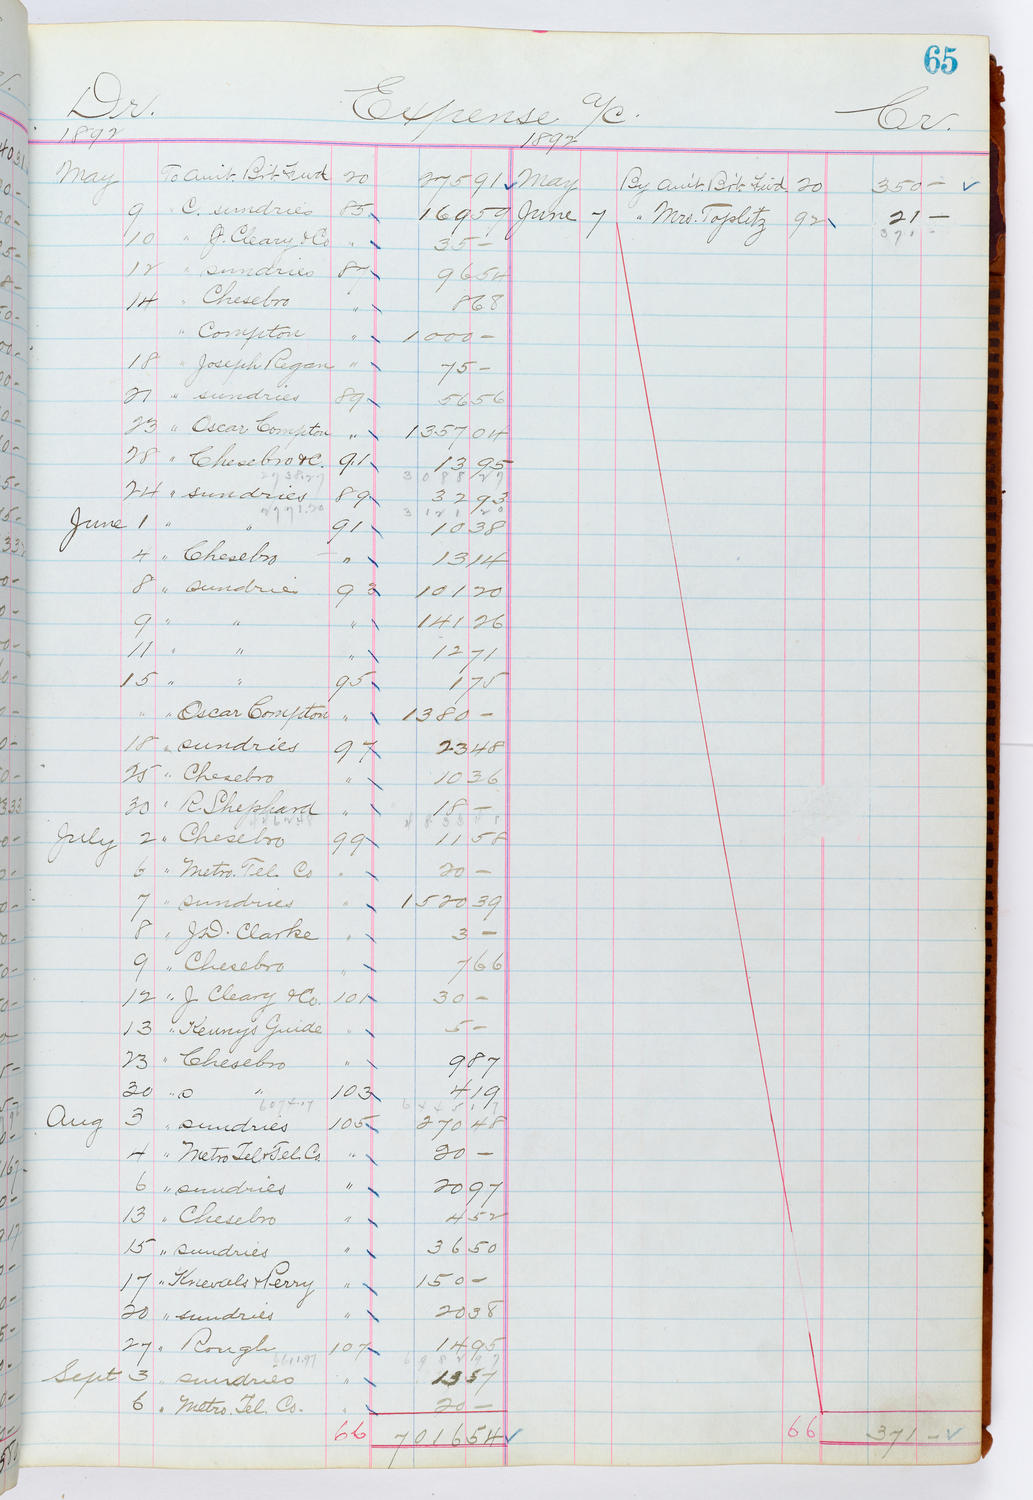 65
Dr. Expense a/c. Cr.
1892 1892
May To Amt. Bt. Fwd 20 275 91 May By Amt. Bt. Fwd 20 350 –
9 C. sundries 85 169 59 June 7 " Mrs. Toplitz 92 21 –
371 –
10 " J. Cleary & Co " 35 –
12 " sundries 87 96 54
14 " Chesebro " 8 68
" Compton " 1000 –
18 " Joseph Regan " 75 –
21 " sundries 89 56 56
23 " Oscar Compton " 1357 04
28 " Chesebro & C. 91 13 95
2738.27 3088 27
24 " sundries 89 32 93
2771.20 3121 20
June 1 " " 91 10 38
4 " Chesebro " 13 14
8 " sundries 93 101 20
9 " " " 141 26
11 " " " 12 71
15 " " 95 1 75
" " Oscar Compton " 1380 –
18 " sundries 97 23 48
25 " Chesebro " 10 36
30 " R. Shephard " 18 –
July 2 " Chesebro 99 11 58
6 " Metro. Tel. Co " 20 –
7 " sundries " 1520 39
8 " J.D. Clarke " 3 –
9 " Chesebro " 7 66
12 " J. Cleary & Co. 101 30 –
13 " Kennys Guide " 5 –
23 " Chesebro " 9 87
30 " o " 103 4 19
6074.17 6445 17
Aug 3 " sundries 105 270 48
4 " Metro Tel & Tel. Co. " 20 –
6 " sundries " 20 97
13 " Chesebro " 4 52
15 " sundries " 36 50
17 " Knevals & Perry " 150 –
20 " sundries " 20 38
27 " Rough 107 14 95
6611.97 6982 97
Sept 3 " sundries " 13 57
6 " Metro. Tel. Co. " 20 –
66 7016 54 66 371 –